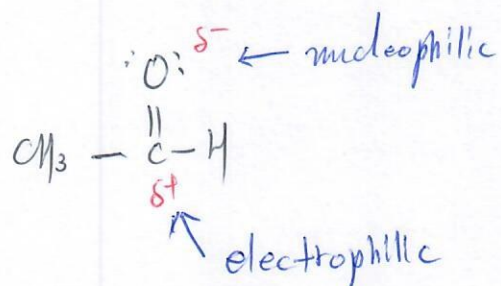 δ-
:O: ← nucleophilic
||
CH3 — C — H
δ+
electrophilic